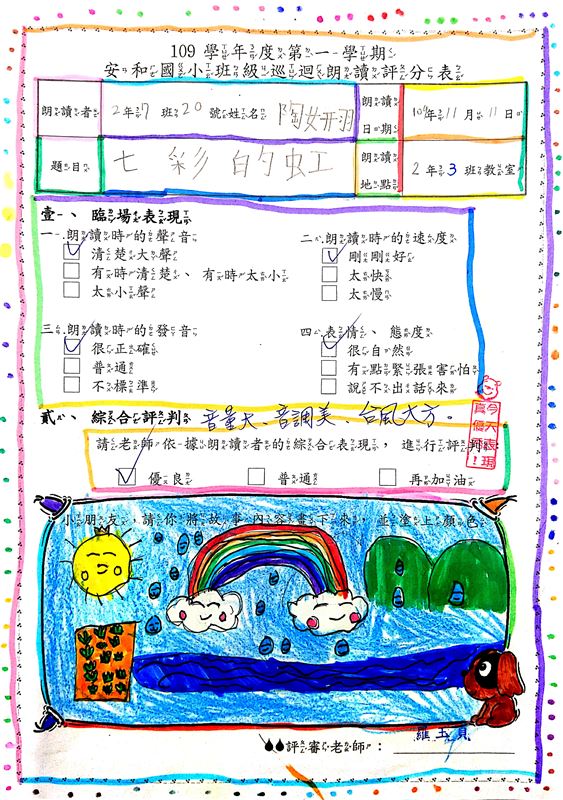 109學年度第一學期
安和國小班級巡迴朗讀評分表
朗讀者 2年7班20號姓名 陶妍羽 朗讀日期 109年11月11日
題目 七彩的虹 朗讀地點 2年3班教室
壹、臨場表現
一.朗讀時的聲音 二.朗讀時的速度
清楚大聲 剛剛好
有時清楚、有時太小 太快
太小聲 太慢
三.朗讀時的發音 四.表情、態度
很正確 很自然
普通 有點緊張害怕
不標準 說不出話來
貳、綜合評判 音量大、音調美、台風大方。
今天表現真優!
請老師依據朗讀者的綜合表現,進行評判:
優良 普通 再加油
小朋友,請你將故事內容畫下來,並塗上顏色
評審老師: 羅玉貞